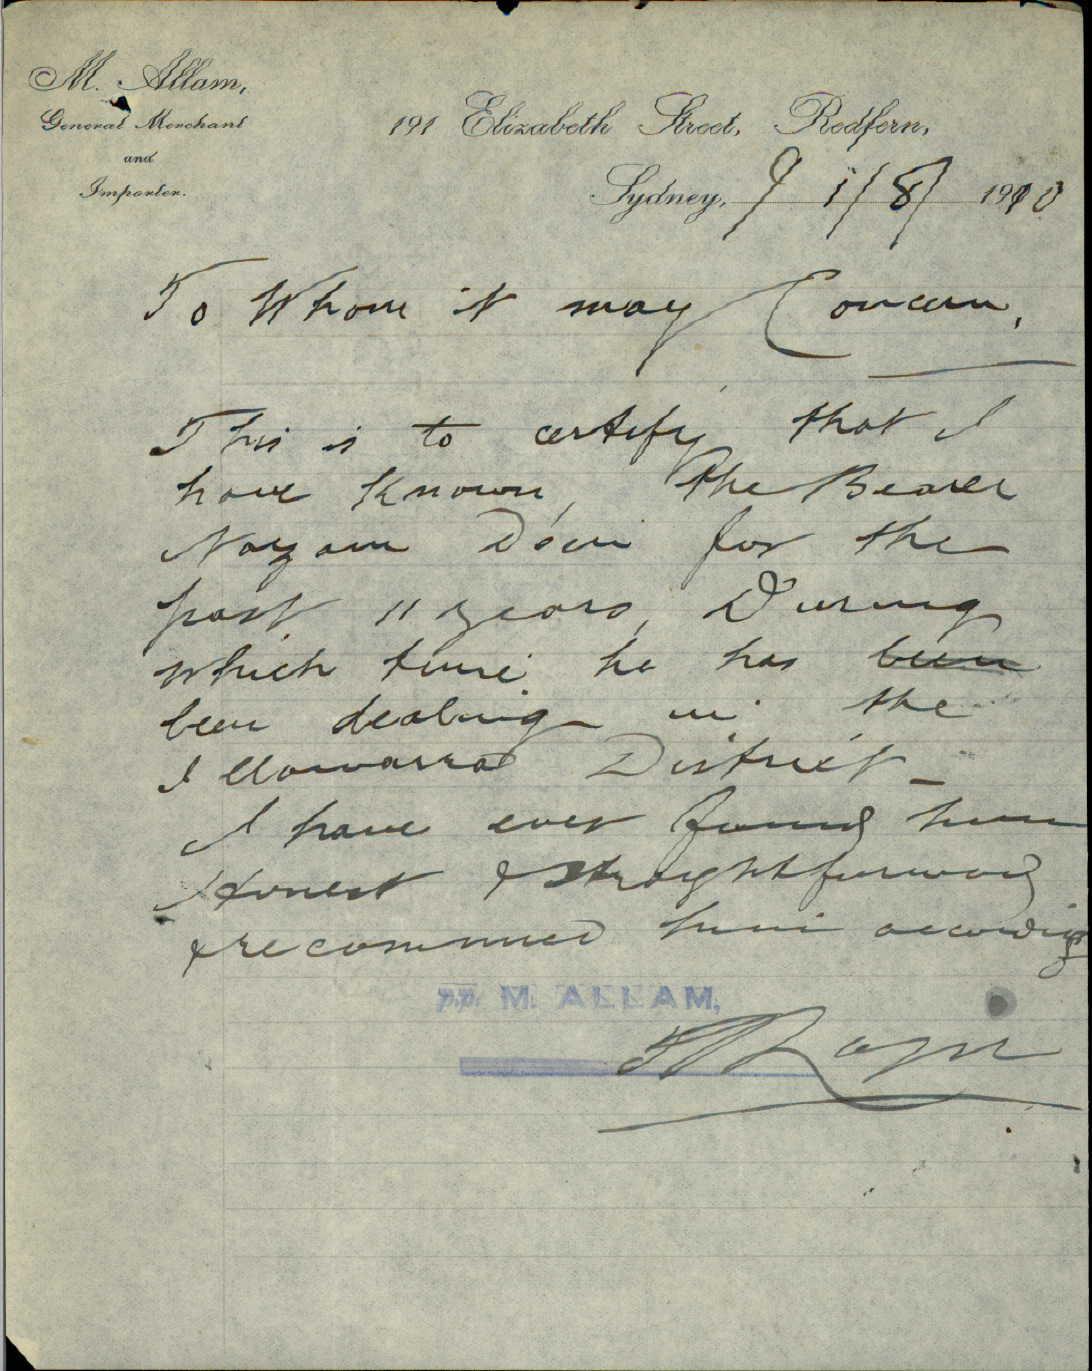 M. Allam,
General Merchant
and
Importer.
191 Elizabeth Street, Redfern,
Sydney, 9 1/8/ 1910
To Whom it may Concern,
This is to certify that I
have known, the Bearer
for the
past 11 years, During
which time he has been
been dealing in the
Illawarra District_
I have ever found him
Honest & straightforward
& recommed him according
p.p. M. ALLAM,